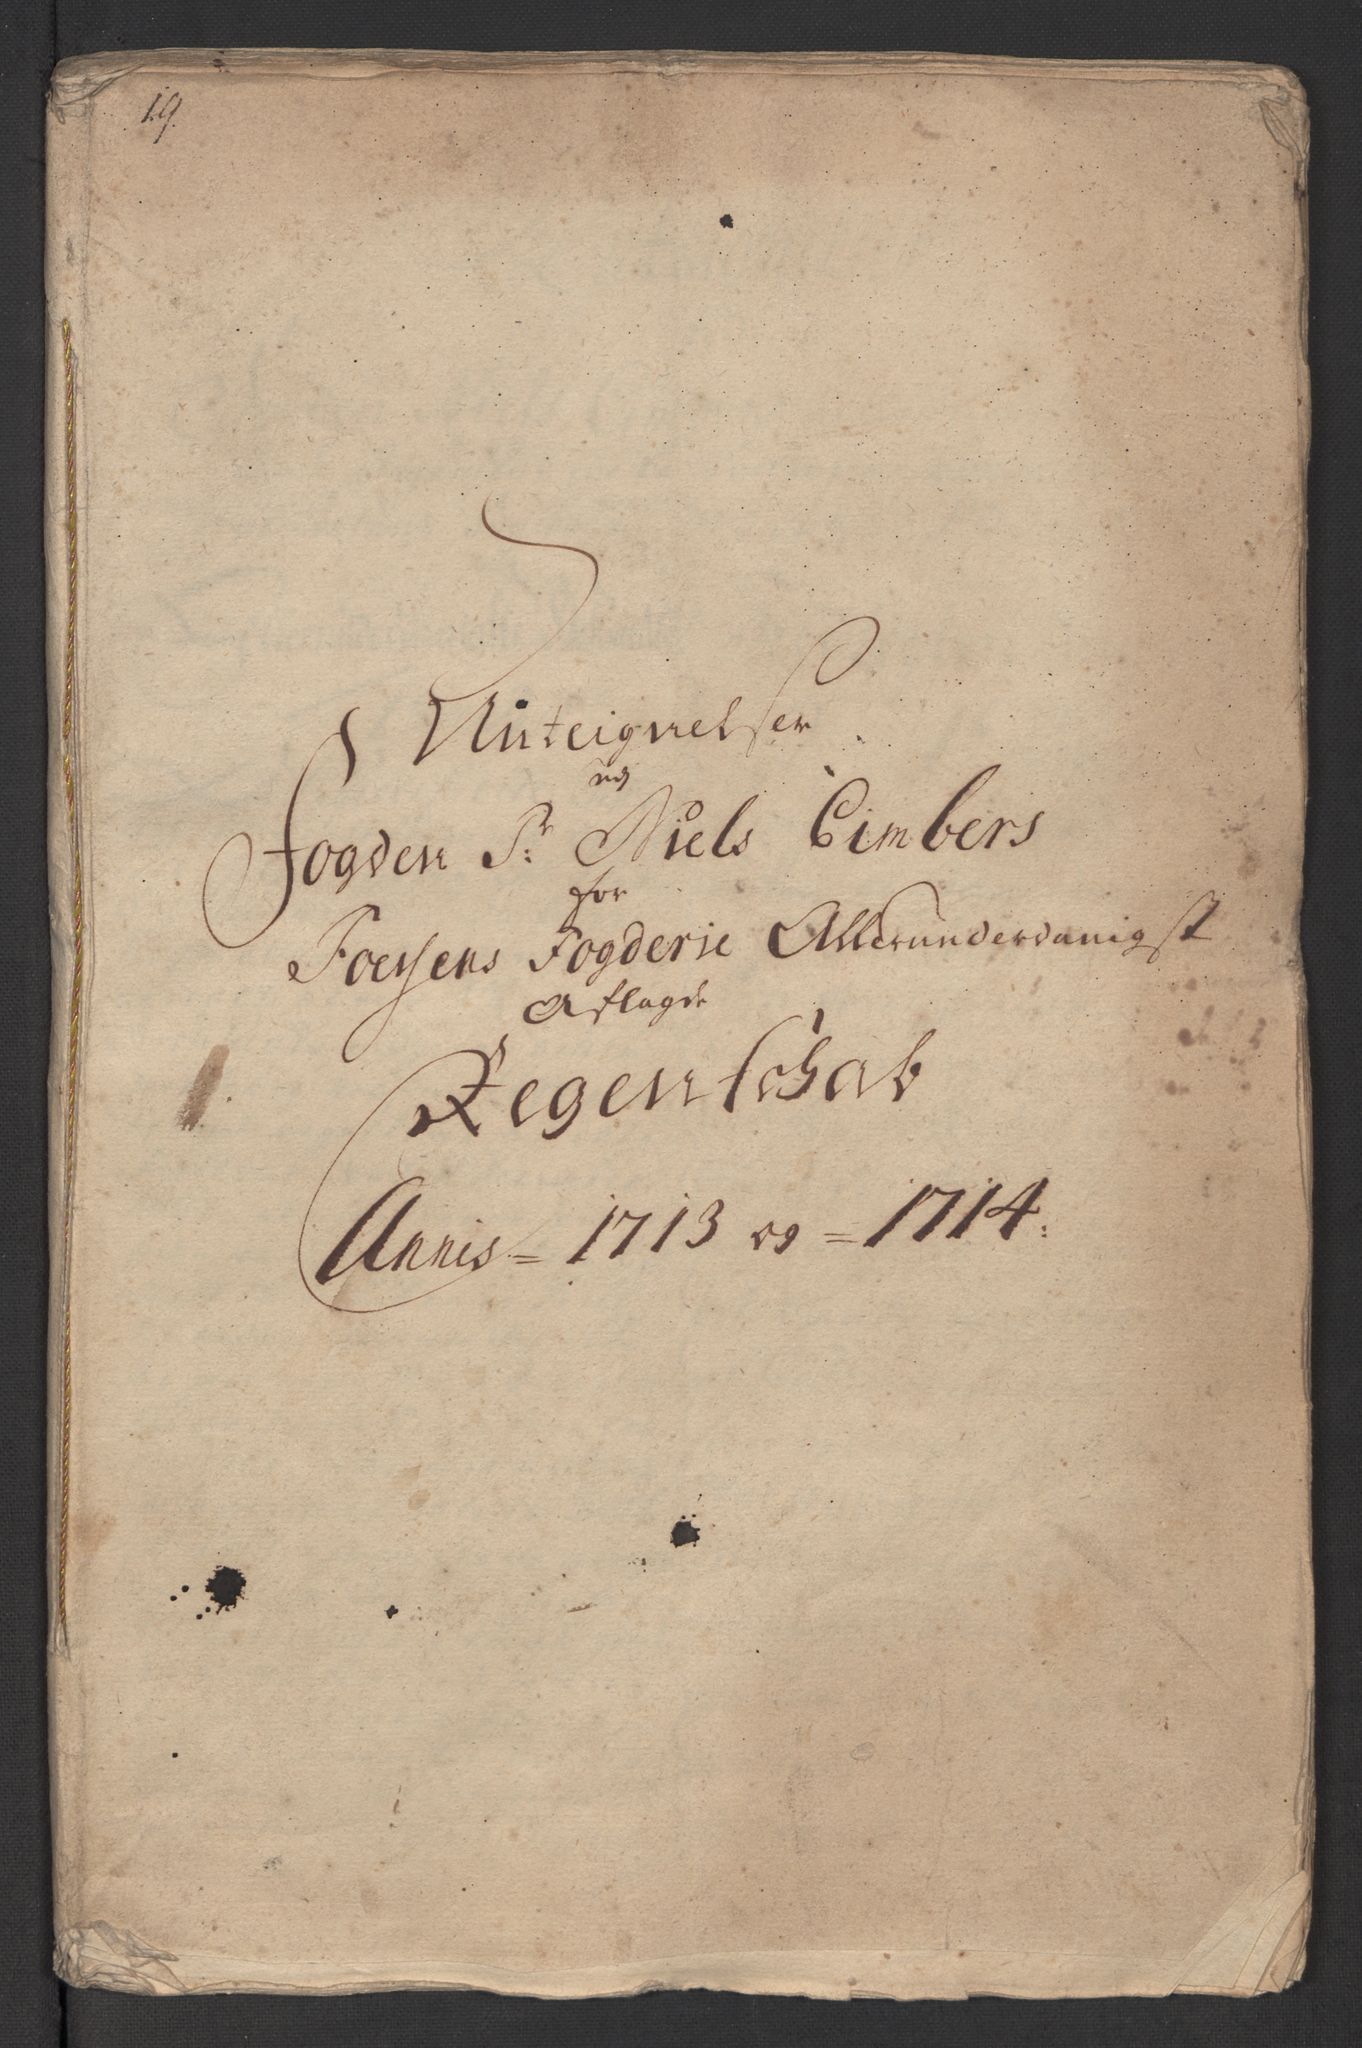 19.
Anteignelser
ved
Fogden Sr. Niels Cimbers
for
Foesens Fogderie Allerunderdanigst
Aflagde
Regenschab
Annis = 1713 og = 1714: